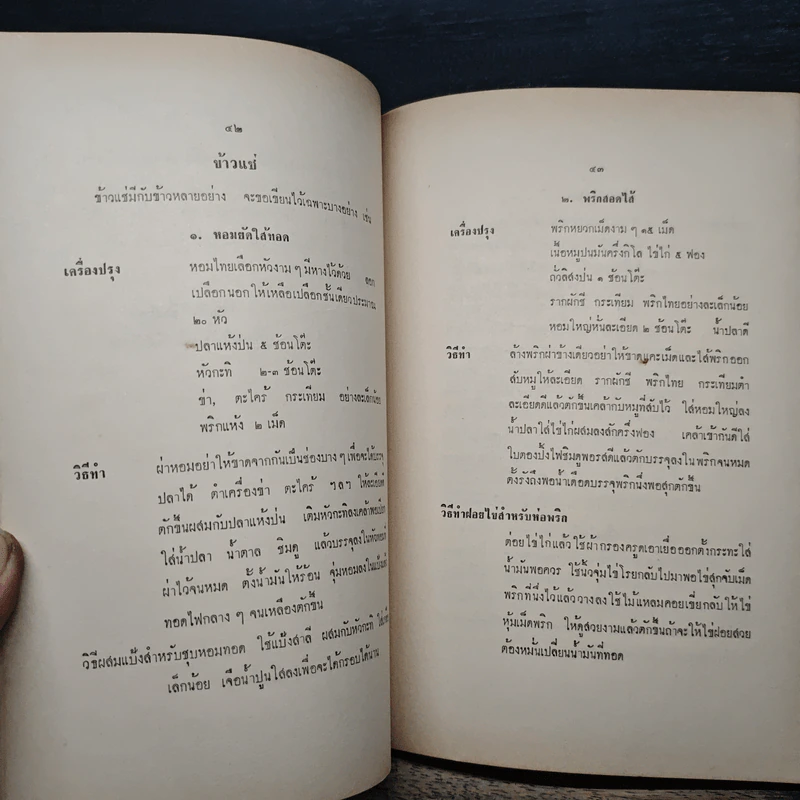 ๔๒
ข้าวแช่
ข้าวแช่มีกับข้าวหลายอย่าง จะขอเขียนไว้เฉพาะบางอย่าง เช่น
๑. หอมยัดไส้ทอด
เครื่องปรุง หอมไทยเลือกหัวงาม ๆ มีหางไว้ด้วย ลอก
เปลือกนอก ให้เหลือเปลือกชั้นเดียวประมาณ
๒๐ หัว
ปลาแห้งป่น ๕ ช้อนโต๊ะ
หัวกะทิ ๒-๓ ช้อนโต๊ะ
ข่า, ตะไคร้ กระเทียม อย่างละเล็กน้อย
พริกแห้ง ๒ เม็ด
วิธีทำ ผ่าหอมอย่าให้ขาดจากกันเป็นช่องบาง ๆ เพื่อจะได้บรรจุ
ปลาได้ ตำเครื่องข่า ตะไคร้ ฯลฯ ให้ละเอียดดี
ตักขึ้นผสมกับปลาแห้งป่น เติมหัวกะทิลงเคล้าพอเปียก
ใส่น้ำปลา น้ำตาล ชิมดู แล้วบรรจุลงในหัวหอมที่
ผ่าไว้จนหมด ตั้งน้ำมันให้ร้อน จุ่มหอมลงในแป้งแล้ว
ทอดไฟกลาง ๆ จนเหลืองตักขึ้น
วิธีผสมแป้งสำหรับชุบหอมทอด ใช้แป้งสาลี ผสมกับหัวกะทิ
เล็กน้อย เจือน้ำปูนใสลงเพื่อจะได้กรอบได้นาน
๔๓
๒. พริกสอดไส้
เครื่องปรุง พริกหยวกเม็ดงาม ๆ ๑๕ เม็ด
เนื้อหมูปนมันครึ่งกิโล ไข่ไก่ ๕ ฟอง
ถั่วลิสงป่น ๑ ช้อนโต๊ะ
รากผักชี กระเทียม พริกไทยอย่างละเล็กน้อย
หอมใหญ่หั่นละเอียด ๒ ช้อนโต๊ะ น้ำปลาดี
วิธีทำ ล้างพริกผ่าข้างเดียวอย่าให้ขาดแคะเม็ดและไส้พริกออก
สับหมูให้ละเอียด รากผักชี พริกไทย กระเทียมตำ
ละเอียดดีแล้วตักขึ้นเคล้ากับหมูที่สับไว้ ใส่หอมใหญ่ลง
น้ำปลาใส่ไข่ไก่ผสมลงสักครึ่งฟอง เคล้าเข้ากันดีใส่
ใบตองปิ้งไฟชิมดูพอรสดีแล้วตักบรรจุลงในพริกจนหมด
ตั้งรังถึงพอน้ำเดือดบรรจุพริกนึ่งพอสุกตักขึ้น
วิธีทำฝอยไข่สำหรับห่อพริก
ต่อยไข่ไก่แล้ว ใช้ผ้ากรองครูดเอาเยื่อออกตั้งกระทะใส่
น้ำมันพอควร ใช้นิ้วจุ่มไข่โรยกลับไปมาพอไข่สุกจับเม็ด
พริกที่นึ่งไว้แล้ววางลงใช้ไม้แหลมคอยเขี่ยกลับ ให้ไข่
หุ้มเม็ดพริก ให้ดูสวยงามแล้วตักขึ้นถ้าจะให้ไข่ฝอยสวย
ต้องหมั่นเปลี่ยนน้ำมันที่ทอด